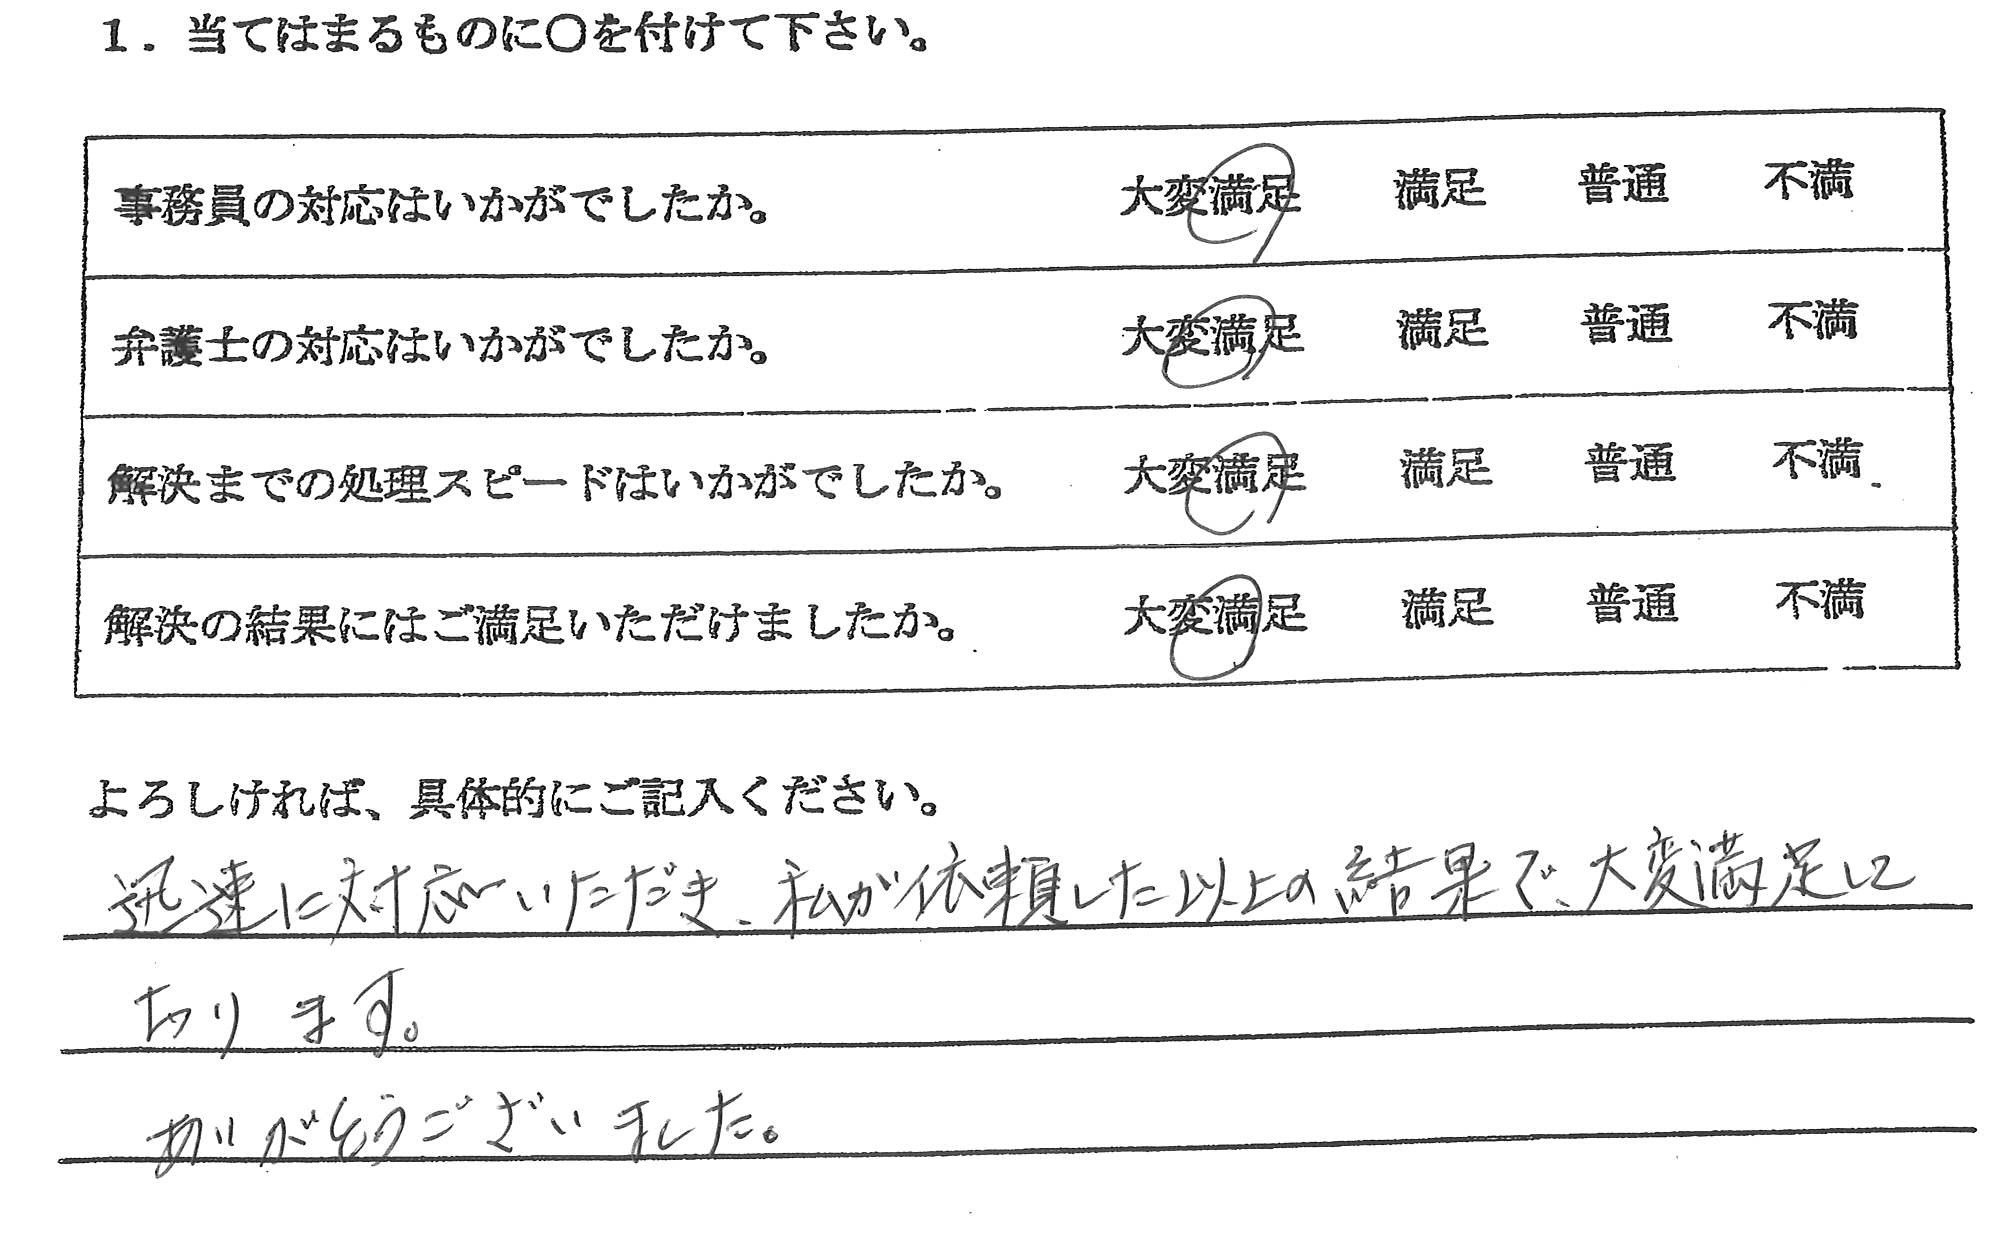 1．当てはまるものに〇を付けて下さい。
事務員の対応はいかがでしたか。 大変満足 満足 普通 不満
弁護士の対応はいかがでしたか。 大変満足 満足 普通 不満
解決までの処理スピードはいかがでしたか。 大変満足 満足 普通 不満
解決の結果にはご満足いただけましたか。 大変満足 満足 普通 不満
よろしければ、具体的にご記入ください。
迅速に対応いただき、私が依頼した以上の結果で、大変満足して
おります。
ありがとうございました。